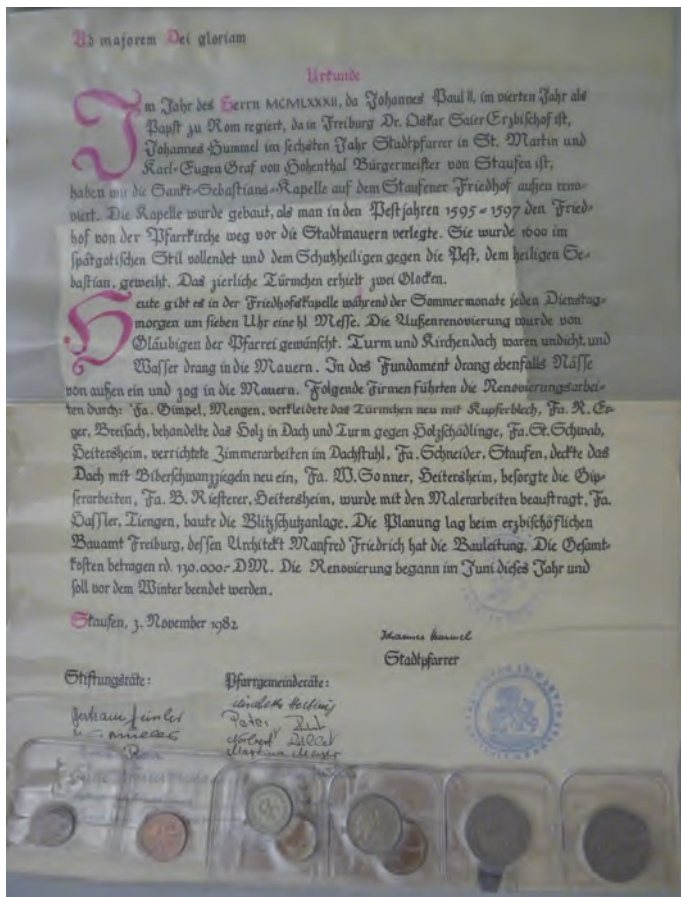 Ad majorem Dei gloriam
Urkunde
Im Jahr des Herrn MCMLXXXII, da Johannes Paul II. im vierten Jahr als
Papst zu Rom regiert, da in Freiburg Dr. Oskar Saier Erzbischof ist,
Johannes Hummel im sechsten Jahr Stadtpfarrer in St. Martin und
Karl-Eugen Graf von Hohenthal Bürgermeister von Staufen ist,
haben wir die Sankt-Sebastians-Kapelle auf dem Staufener Friedhof außen reno-
viert. Die Kapelle wurde gebaut, als man in den Pestjahren 1595-1597 den Fried-
hof von der Pfarrkirche weg vor die Stadtmauern verlegte. Sie wurde 1600 im
spätgotischen Stil vollendet und dem Schutzheiligen gegen die Pest, dem heiligen Se-
bastian, geweiht. Das zierliche Türmchen erhielt zwei Glocken.
Heute gibt es in der Friedhofskapelle während der Sommermonate jeden Dienstag-
morgen um sieben Uhr eine hl Messe. Die Außenrenovierung wurde von
Gläubigen der Pfarrei gewünscht. Turm und Kirchendach waren undicht, und
Wasser drang in die Mauern. In das Fundament drang ebenfalls Nässe
von außen ein und zog in die Mauern. Folgende Firmen führten die Renovierungsarbei-
ten durch: Fa. Gimpel, Mengen, verkleidete das Türmchen neu mit Kupferblech, Fa. R. Eg-
ger, Breisach, behandelte das Holz in Dach und Turm gegen Holzschädlinge, Fa. St. Schwab,
Heitersheim, verrichtete Zimmerarbeiten im Dachstuhl, Fa. Schneider, Staufen, deckte das
Dach mit Biberschwanzziegeln neu ein, Fa. W. Sonner, Heitersheim, besorgte die Gip-
serarbeiten, Fa. B. Riesterer, Heitersheim, wurde mit den Malerarbeiten beauftragt, Fa.
Hassler, Tiengen, baute die Blitzschutzanlage. Die Planung lag beim erzbischöflichen
Bauamt Freiburg, dessen Architekt Manfred Friedrich hat die Bauleitung. Die Gesamt-
kosten betragen rd. 130.000.- DM. Die Renovierung begann im Juni dieses Jahr und
soll vor dem Winter beendet werden.
Staufen, 3. November 1982
Johannes Hummel
Stadtpfarrer
Stiftungsräte: Pfarrgemeinderäte:
Peter
Norbert
Martina